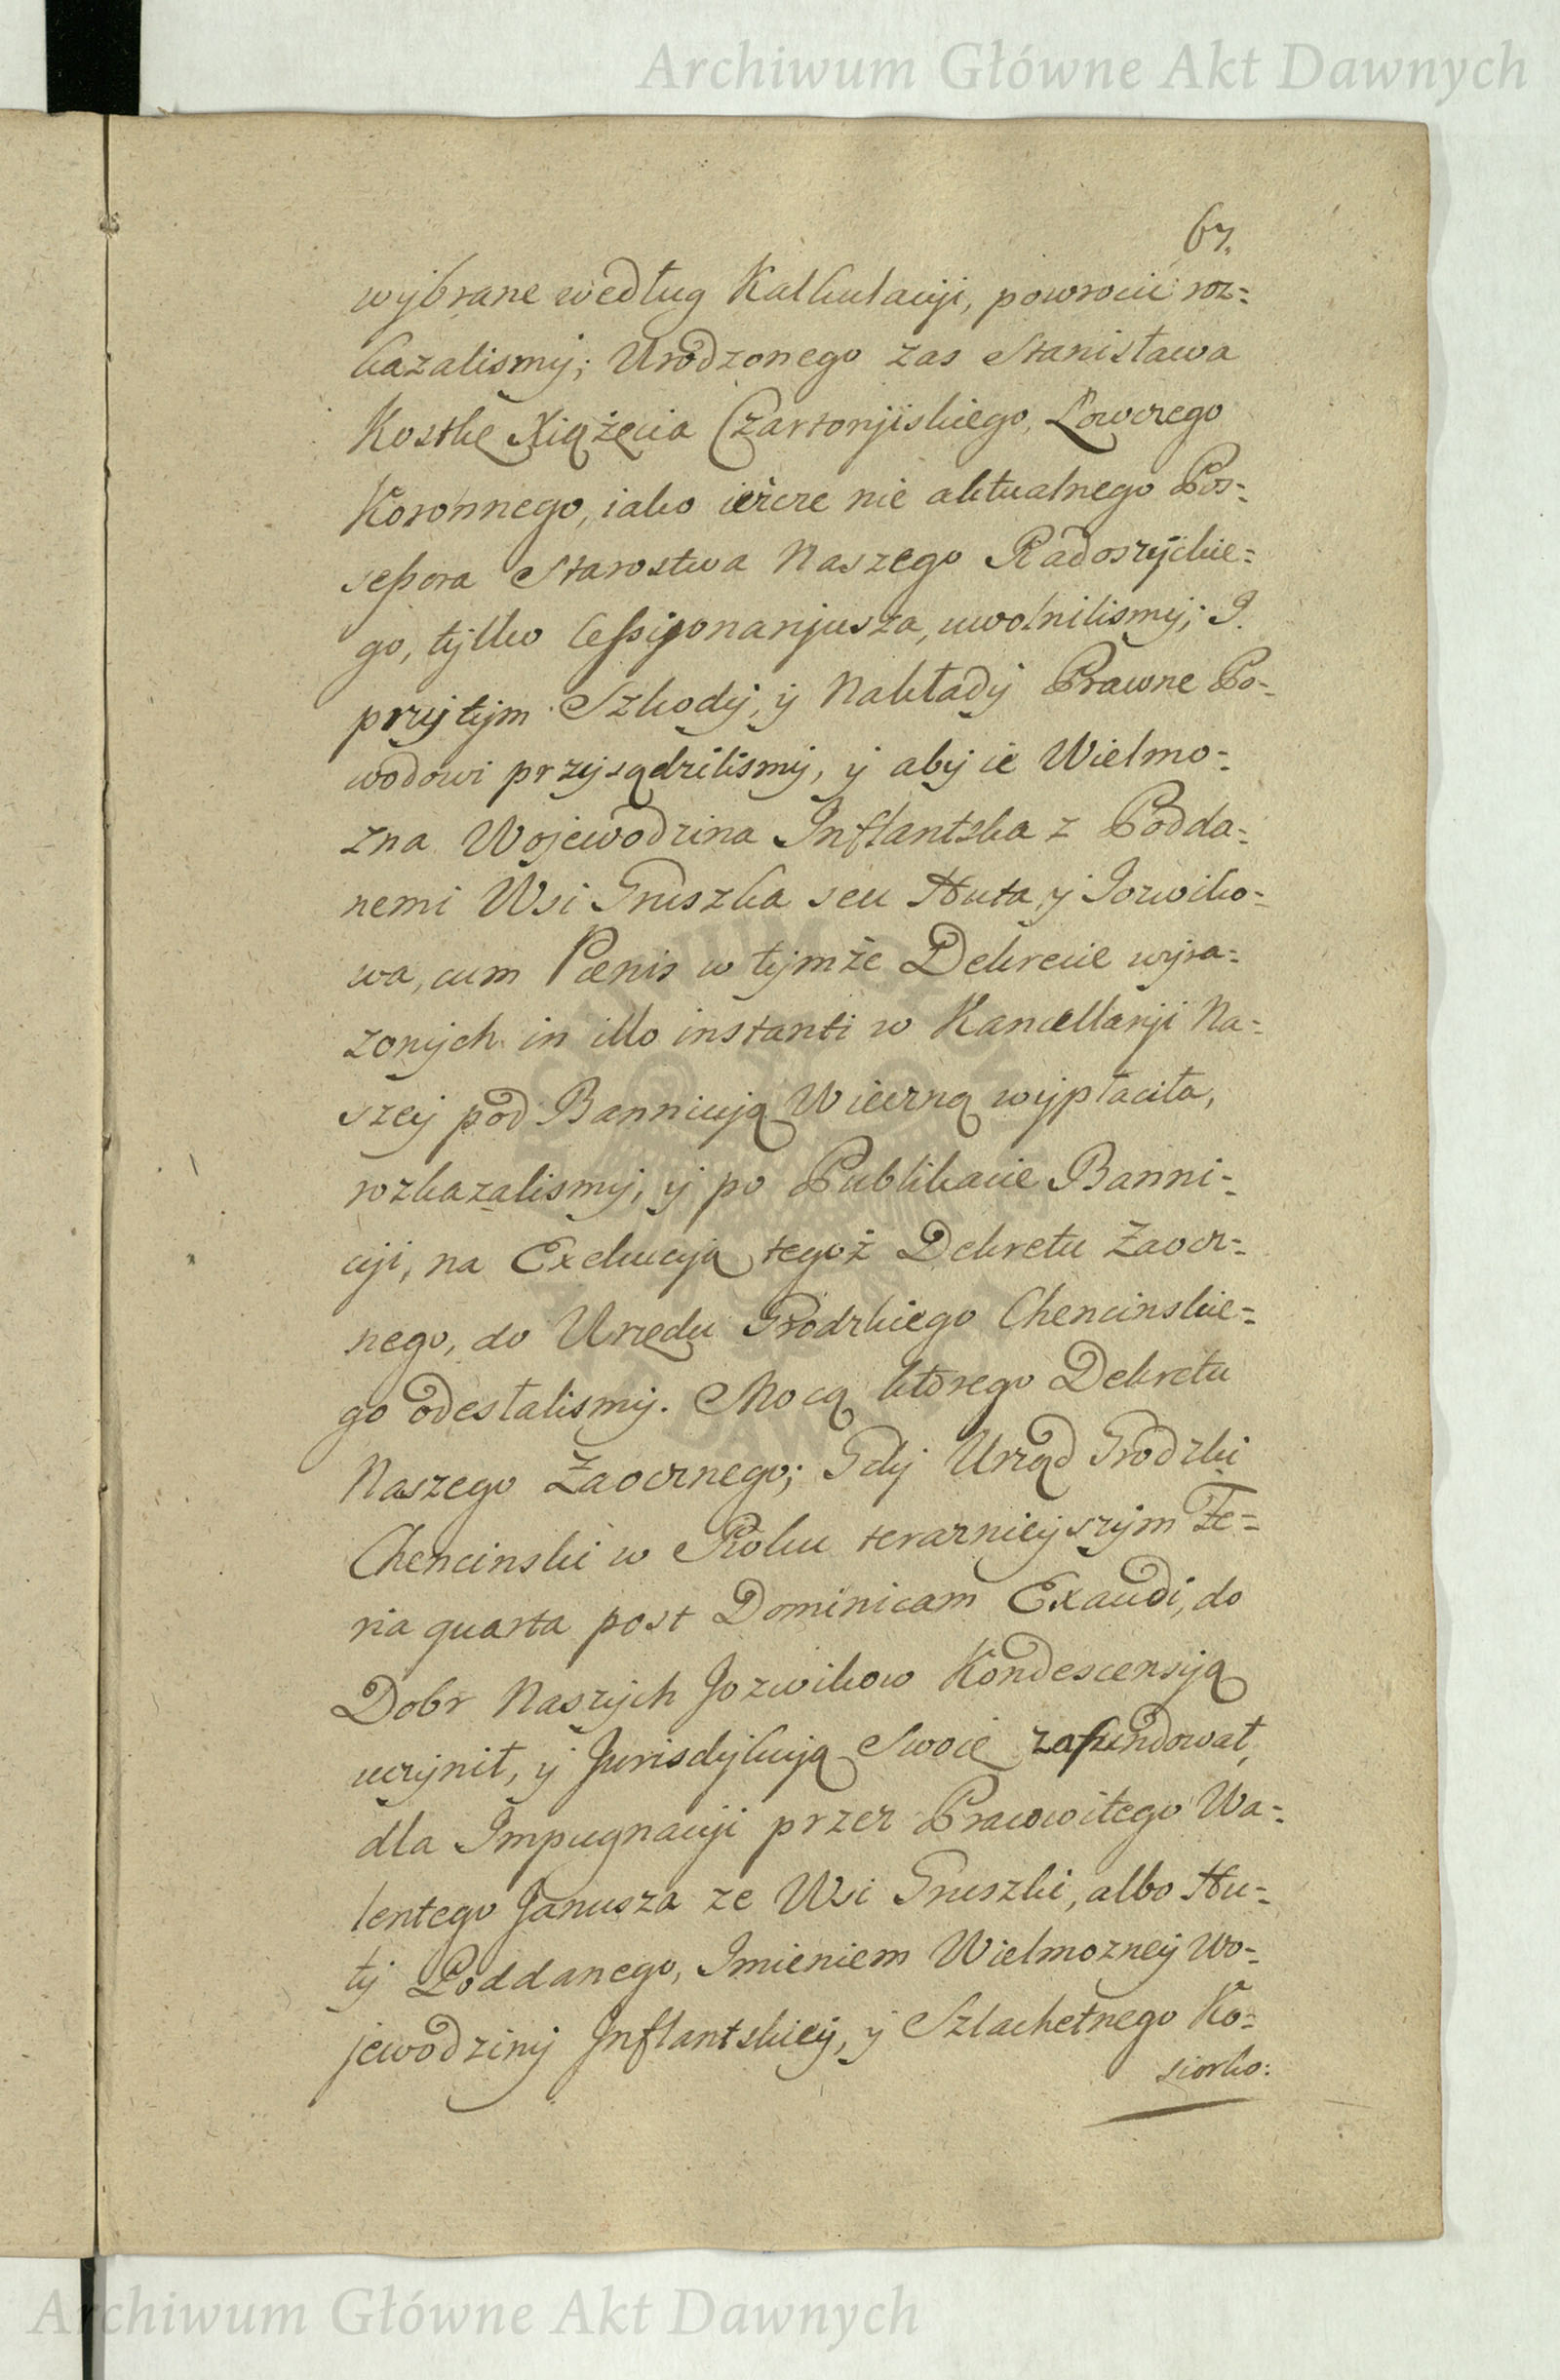 Archiwum Główne Akt Dawnych
67.
wybrane według Kalkulacyi, powrocić roz=
kazalismy; Urodzonego zas Stanisława
Kostkę Xiążęcia Czartoryiskiego, Łowczego
Koronnego, iako ieszcze nie aktualnego Pos=
sessora Starostwa Naszego Radoszyckie=
go, tylko Cessyonaryusza, uwolnilismy; J.
przytym Szkody, y Nakłady Prawne Po=
wodowi przysądzilismy, y aby ie Wielmo=
zna Wojewodzina Inflantska z Podda=
nemi Wsi Gruszka seu Huta y Jozwiko=
wa, cum Pœnis w tymże Dekrecie wyra=
zonych in illo instanti w Kancellaryi Na=
szey pod Bannicyą Wieczną wypłaciła,
rozkazalismy, y po Publikacie Banni=
cyi, na Exekucyą tegoż Dekretu Zaocz=
nego, do Urzędu Grodzkiego Chencinskie=
go odesłalismy. Mocą ktorego Dekretu
Naszego Zaocznego; Gdy Urząd Grodzki
Chencinski w Roku teraznieyszym Fe=
ria quarta post Dominicam Exaudi, do
Dobr Naszych Jozwikow Kondescensyą
uczynił, y Jurisdykcyą Swoię zafundował,
dla Impugnacyi przez Pracowitego Wa=
lentego Janusza ze Wsi Gruszki, albo Hu=
ty Poddanego, Imieniem Wielmozney Wo=
jewodziny Inflantskiey, y Szlachetnego Ko=
siorko:
Archiwum Główne Akt Dawnych